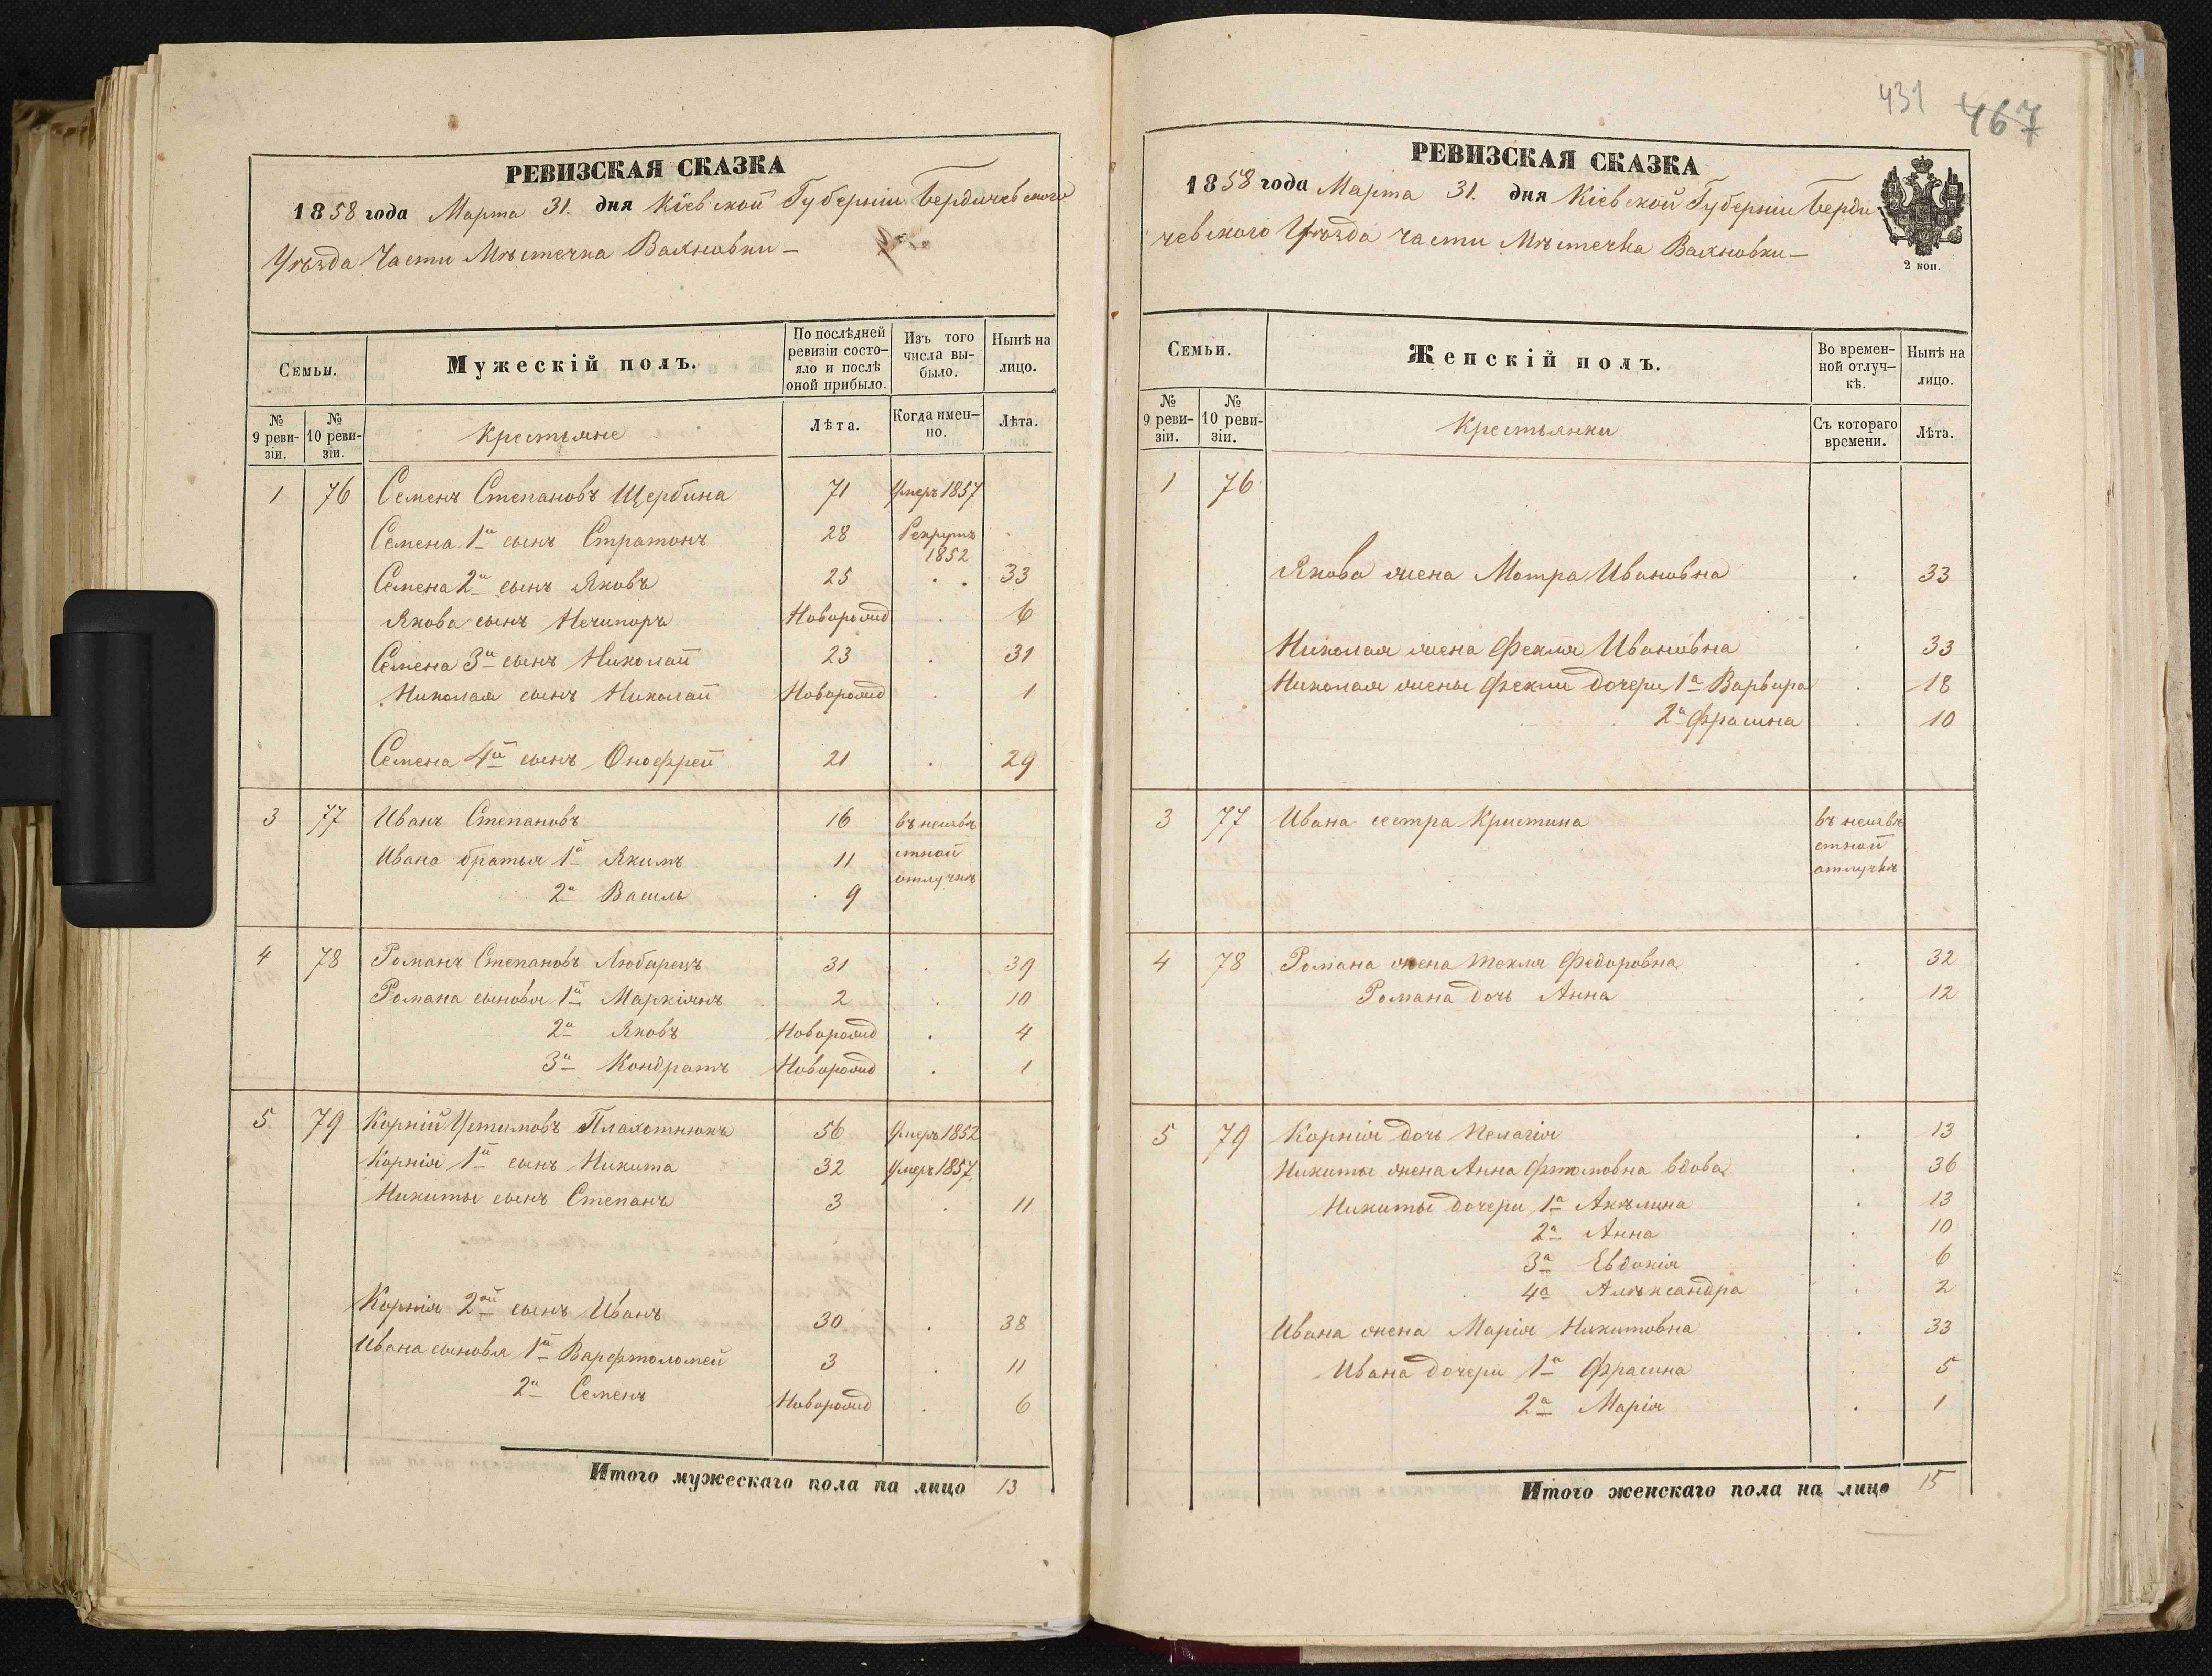 РЕВИЗСКАЯ СКАЗКА
1858 года Марта 31. дня Кіевской Губерніи Бердичевского
Уѣзда Части Мѣстечка Вахновки —
Семьи.
Мужескій полъ.
По послѣдней ревизіи состояло и послѣ оной прибыло.
Изъ того числа выбыло.
Нынѣ на лицо.
№ 9 ревизіи.
№ 10 ревизіи.
Крестьяне
Лѣта.
Когда именно.
Лѣта.
1 76 Семенъ Степановъ Щербина 71 Умеръ 1857
Семена 1й сынъ Стратонъ 28 Рекрутъ 1852
Семена 2й сынъ Яковъ 25 . . 33
Якова сынъ Нечипоръ Новорожд . 6
Семена 3й сынъ Николай 23 . 31
Николая сынъ Николай Новорожд . 1
Семена 4й сынъ Онофрей 21 . 29
3 77 Иванъ Степановъ 16 въ неизвѣ
Ивана братья 1й Якимъ 11 стной
2й Василь 9 отлучкѣ
4 78 Романъ Степановъ Любарецъ 31 . 39
Романа сыновья 1й Маркіянъ 2 . 10
2й Яковъ Новорожд . 4
3й Кондратъ Новорожд . 1
5 79 Корній Устимовъ Плахотнюкъ 56 Умеръ 1852
Корнія 1й сынъ Никита 32 Умеръ 1857
Никиты сынъ Степанъ 3 . 11
Корнія 2ой сынъ Иванъ 30 . 38
Ивана сыновья 1й Варфтоломей 3 . 11
2й Семенъ Новорожд . 6
Итого мужескаго пола на лицо 13
431 467
РЕВИЗСКАЯ СКАЗКА
1858 года Марта 31. дня Кіевской Губерніи Берди
чевского Уѣзда части Мѣстечка Вахновки —
2 коп.
Семьи.
Женскій полъ.
Во временной отлучкѣ.
Нынѣ на лицо.
№ 9 ревизіи.
№ 10 ревизіи.
Крестьянки
Съ котораго времени.
Лѣта.
1 76
Якова жена Мотра Ивановна . 33
Николая жена Фекля Ивановна . 33
Николая жены Фекли дочери 1а Варвара . 18
2а Фрасина . 10
3 77 Ивана сестра Кристина въ неизвѣ
стной
отлучкѣ
4 78 Романа жена Текля Федоровна . 32
Романа дочь Анна . 12
5 79 Корнія дочь Пелагія . 13
Никиты жена Анна вдова . 36
Никиты дочери 1а Акѣлина . 13
2а Анна . 10
3а Евдокія . 6
4а Алѣксандра . 2
Ивана жена Марія Никитовна . 33
Ивана дочери 1а Фрасина . 5
2а Марія . 1
Итого женскаго пола на лицо 15